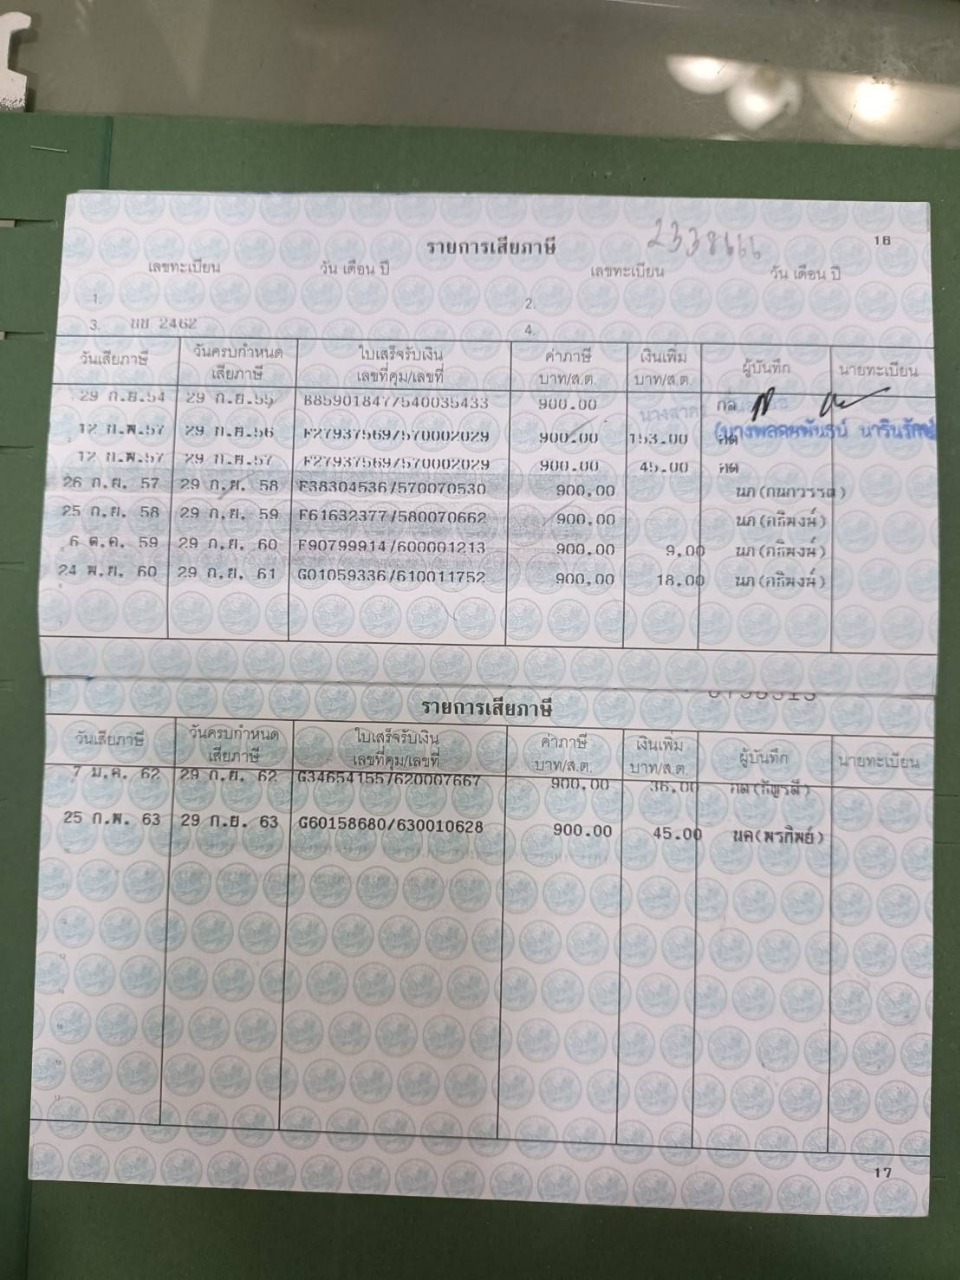 16
รายการเสียภาษี 2338666
เลขทะเบียน วัน เดือน ปี เลขทะเบียน วัน เดือน ปี
1. 2.
3. บษ 2462 4.
วันเสียภาษี วันครบกำหนดเสียภาษี ใบเสร็จรับเงิน เลขที่คุม/เลขที่ ค่าภาษี บาท/ส.ต. เงินเพิ่ม บาท/ส.ต. ผู้บันทึก นายทะเบียน
29 ก.ย.54 29 ก.ย.55 B85901847/540035433 900.00 กล
12 ก.พ.57 29 ก.ย.56 F27937569/570002029 900.00 153.00
12 ก.พ.57 29 ก.ย.57 F27937569/570002029 900.00 45.00
26 ก.ย. 57 29 ก.ย. 58 F38304536/570070530 900.00 นภ(กนกวรรต)
25 ก.ย. 58 29 ก.ย. 59 F61632377/580070662 900.00
6 ต.ค. 59 29 ก.ย. 60 F90799914/600001213 900.00 9.00
24 พ.ย. 60 29 ก.ย. 61 G01059336/610011752 900.00 18.00
รายการเสียภาษี
วันเสียภาษี วันครบกำหนดเสียภาษี ใบเสร็จรับเงิน เลขที่คุม/เลขที่ ค่าภาษี บาท/ส.ต. เงินเพิ่ม บาท/ส.ต. ผู้บันทึก นายทะเบียน
7 ม.ค. 62 29 ก.ย. 62 G34654155/620007667 900.00 36.00
25 ก.พ. 63 29 ก.ย. 63 G60158680/630010628 900.00 45.00 นค(พรทิพย์)
17